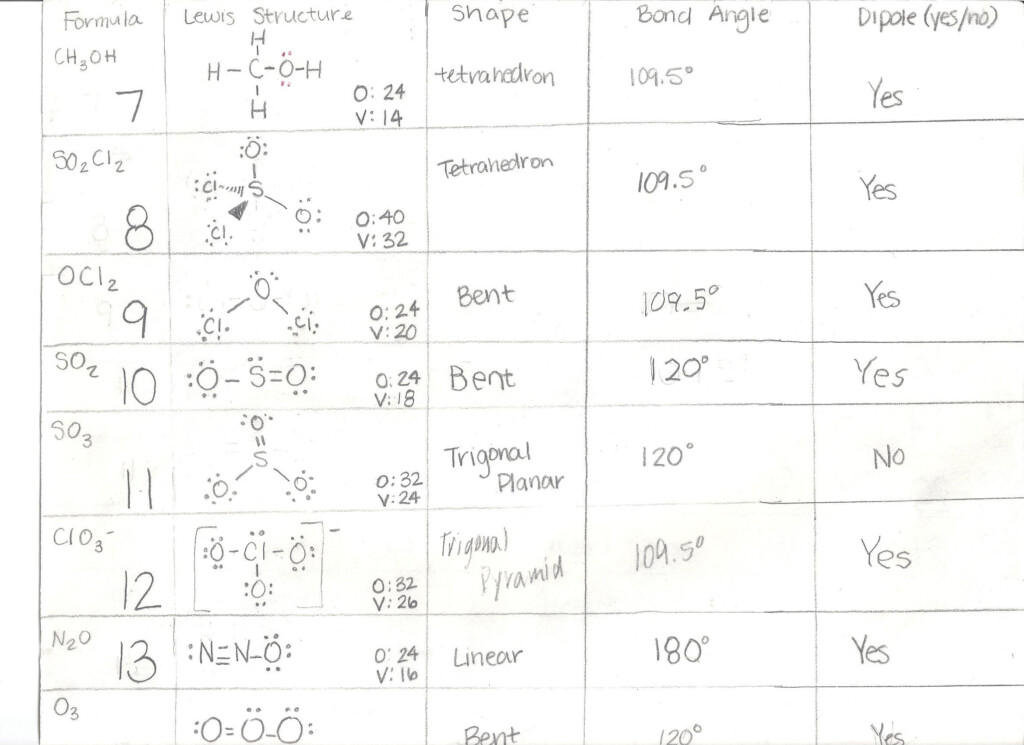 Formula Lewis Structure Shape Bond Angle Dipole (yes/no)
CH₃OH
7
H
H–C–O–H
H
O: 24
V: 14
tetrahedron
109.5°
Yes
SO₂Cl₂
8
:O:
:Cl S
Cl. O:
O:40
V:32
Tetrahedron
109.5°
Yes
OCl₂
9
O
Cl Cl
O:24
V:20
Bent
109.5°
Yes
SO₂
10
:O–S=O:
O:24
V:18
Bent
120°
Yes
SO₃
11
:O:
S
O O
O:32
V:24
Trigonal
Planar
120°
No
ClO₃⁻
12
[:O–Cl–O:]⁻
:O:
O:32
V:26
Trigonal
Pyramid
109.5°
Yes
N₂O
13
:N≡N–O:
O: 24
V:16
Linear
180°
Yes
O₃
:O=O–O:
Bent
120°
Yes